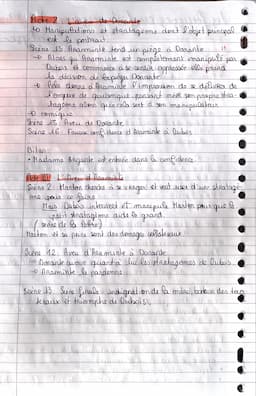 Acte 2 L'aveu de Dorante
↳ Manipulations et stratagèmes dont l'objet principal
est le portrait.
Scène 13 Araminte tend un piège à Dorante
→ Alors qu' Araminte est complètement manipulée par
Dubois et commence à se sentir oppressée elle prend
la décision de Dorante.
→ Cela donne à Araminte l'impression de se défaire de
l'emprise de quelqu'un pensant avoir son propre stra-
tagème alors que cela sert à son manipulateur.
→ comique
Scène 15 Aveu de Dorante
Scène 16 Fausse confidence d'Araminte à Dubois
Bilan:
• Madame Argante est entrée dans la confidence.
Acte III L'aveu d'Araminte
Scène 2: Marton cherche à se venger et veut user d'un stratagè-
me pour ce faire
Mais Dubois intervient et manipule Marton pour que le
petit stratagème aide le grand.
(scène de la lettre)
Marton et se prise sont des dommages collatéraux.
Scène 12. Aveu d'Araminte à Dorante
→ Dorante avoue quant à lui les stratagèmes de Dubois.
→ Araminte le pardonne.
Scène 13. Scène finale - indignation de la mère,
et triomphe de Dubois.